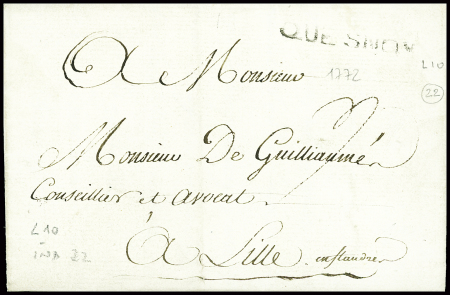 QUESNOY
L10
A Monsieur
1772
22
Monsieur De Guilliaumé
Conseillier et Avocat
L10
ind 22
à Lille en flandre